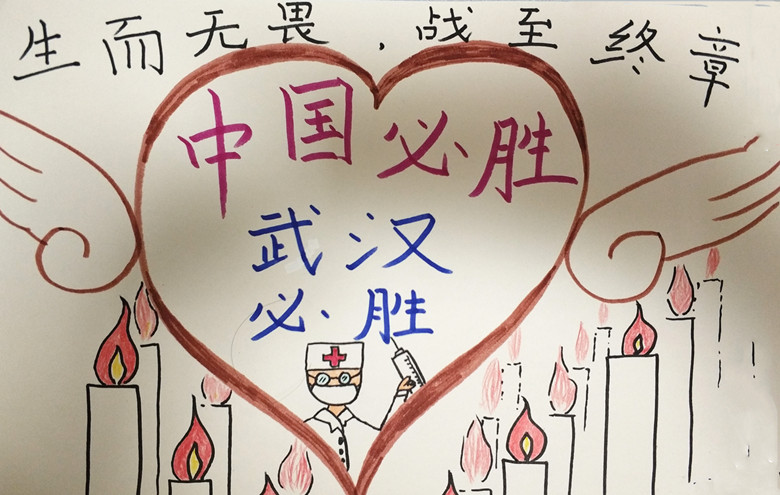 生而无畏,战至终章
中国必胜
武汉
必胜